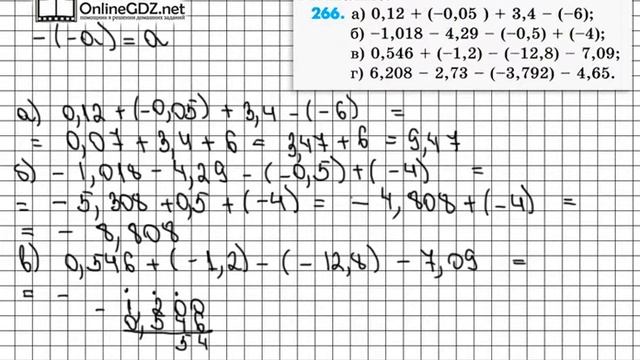 OnlineGDZ.net
помощник в решении домашних заданий
-(-a) = a
266. а) 0,12 + (-0,05 ) + 3,4 − (−6);
б) −1,018 − 4,29 − (−0,5) + (−4);
в) 0,546 + (−1,2) − (−12,8) − 7,09;
г) 6,208 − 2,73 − (−3,792) − 4,65.
а) 0,12 + (-0,05) + 3,4 - (-6) =
= 0,07 + 3,4 + 6 = 3,47 + 6 = 9,47
б) - 1,018 - 4,29 - (-0,5) + (-4) =
= - 5,308 + 0,5 + (-4) = - 4,808 + (-4) =
= - 8,808
в) 0,546 + (-1,2) - (-12,8) - 7,09 =
= -
- 1,200
0,546
54